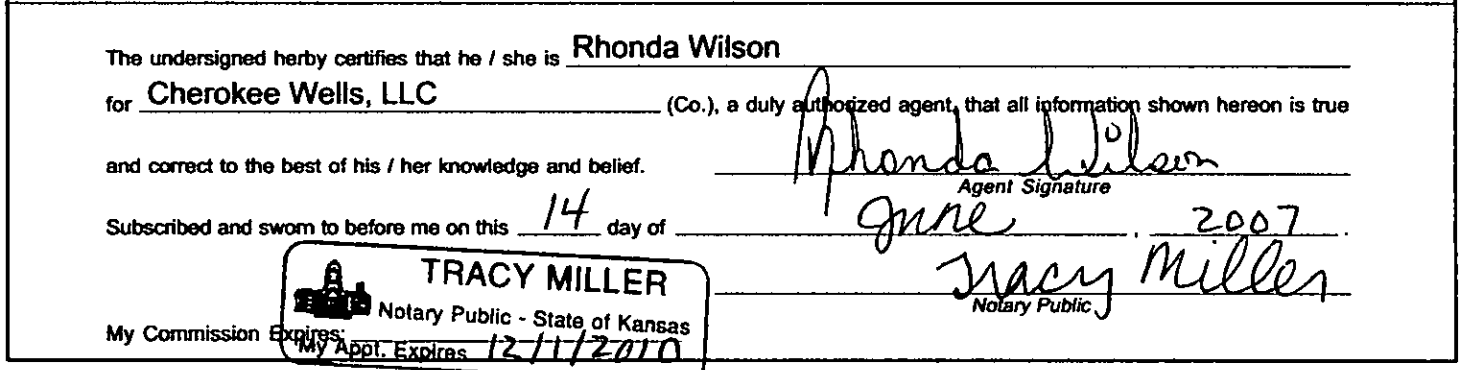 The undersigned herby certifies that he / she is Rhonda Wilson
for Cherokee Wells, LLC (Co.), a duly authorized agent, that all information shown hereon is true
and correct to the best of his / her knowledge and belief. Rhonda Wilson
Agent Signature
Subscribed and sworn to before me on this 14 day of June, 2007.
Tracy Miller
Notary Public
TRACY MILLER
Notary Public - State of Kansas
My Commission Expires:
My Appt. Expires 12/1/2010